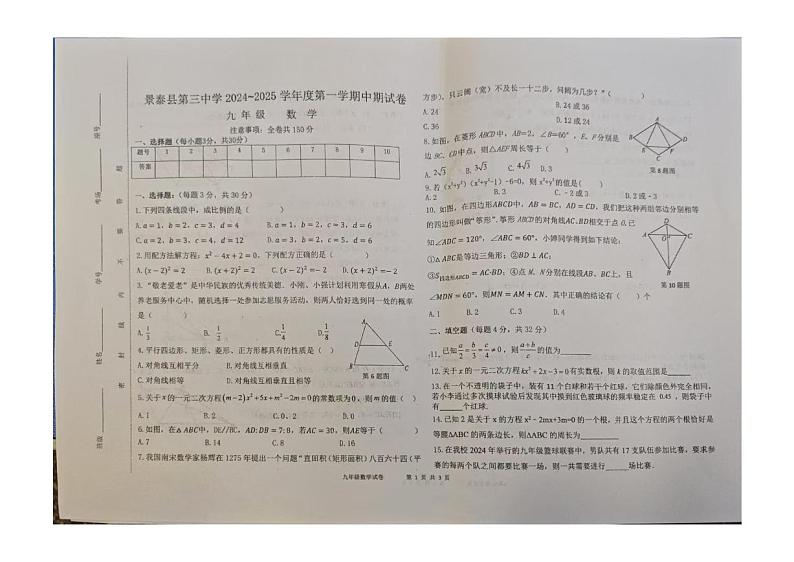 景泰县第三中学 2024~2025 学年度第一学期中期试卷
九 年 级 数 学
注意事项：全卷共 150 分
一、选择题（每小题3分，共30分）
题号 1 2 3 4 5 6 7 8 9 10
答案
一、选择题：（每题 3 分，共 30 分）
1.下列四条线段中，成比例的是（ ）
A.a=1，b=2，c=3，d=4 B.a=1，b=2，c=3，d=6
C.a=2，b=3，c=4，d=12 D.a=3，b=2，c=5，d=6
2.用配方法解方程：x²－4x+2=0，下列配方正确的是（ ）
A.(x－2)²=2 B.(x+2)²=2 C.(x－2)²=－2 D.(x－2)²=6
3.“敬老爱老”是中华民族的优秀传统美德．小刚、小强计划利用寒假从A，B两处
养老服务中心中，随机选择一处参加志愿服务活动，则两人恰好选到同一处的概率
是（ ）
A.1/3 B.1/2 C.1/4 D.1/8
4.平行四边形、矩形、菱形、正方形都具有的性质是（ ）
A.对角线互相平分 B.对角线互相垂直
C.对角线相等 D.对角线互相垂直且相等
第 6 题图
5.关于x的一元二次方程(m－2)x²+5x+m²－2m=0的常数项为0，则m的值（ ）
A.1 B.2 C.0、2 D.0
6.如图，在△ABC中，DE//BC，AD:DB=7:8，若AC=30，则AE等于（ ）
A.7 B.14 C.8 D.16
7.我国南宋数学家杨辉在 1275 年提出一个问题“直田积（矩形面积）八百六十四（平
方步），只云阔（宽）不及长一十二步，问阔为几步？”（ ）
A.24 B.24 或 36
C.36 D.12 或 24
8.如图，在菱形 ABCD 中，AB=2，∠B=60°，E、F分别是
边 BC、CD中点，则△AEF周长等于（ ）
A.2√3 B.3√3 C.4√3 D.3
第 8 题图
9.若（x²+y²）（x²+y²-1）-6=0，则 x²+y²的值是（ ）
A.2 B.3 C.﹣2 或 3 D.2 或﹣3
10.如图，在四边形ABCD中，AB=BC，AD=CD，我们把这种两组邻边分别相等
的四边形叫做“筝形”．筝形 ABCD的对角线AC、BD相交于点O．已
知∠ADC=120°，∠ABC=60°，小婵同学得到如下结论：
①△ABC是等边三角形；②BD⊥AC；
③S四边形ABCD=AC·BD；④点 M、N分别在线段AB、BC上，且
∠MDN=60°，则MN=AM+CN．其中正确的结论有（ ）个
第 10 题图
A.1 B.2 C.3 D.4
二、填空题（每题 4 分，共 32 分）
11.已知a/2=b/3=c/4≠0，则(a+b)/c的值为
12.关于x的一元二次方程kx²+2x－3=0有实数根，则k的取值范围是
13.在一个不透明的袋子中，装有 11 个白球和若干个红球，它们除颜色外完全相同，
若小李通过多次摸球试验后发现其中摸到红色玻璃球的频率稳定在 0.45，则袋子中
有 个红球．
14.已知 2 是关于 x 的方程 x²﹣2mx+3m=0 的一个根，并且这个方程的两个根恰好是
等腰△ABC 的两条边长，则△ABC 的周长为
15.在我校 2024 年举行的九年级篮球联赛中，男队共有 17 支队伍参加比赛，要求参
赛的每两个队之间都要比赛一场，则一共需要进行 场比赛．
九年级数学试卷 第 1 页 共 3 页
班级
姓名
学号
考场
座号
密 封 线 内 不 要 答 题